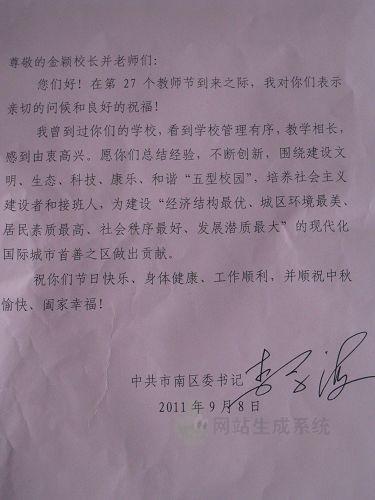 尊敬的金颖校长并老师们：
您们好！在第 27 个教师节到来之际，我对你们表示
亲切的问候和良好的祝福！
我曾到过你们的学校，看到学校管理有序，教学相长，
感到由衷高兴。愿你们总结经验，不断创新，围绕建设文
明、生态、科技、康乐、和谐“五型校园”，培养社会主义
建设者和接班人，为建设“经济结构最优、城区环境最美、
居民素质最高、社会秩序最好、发展潜质最大”的现代化
国际城市首善之区做出贡献。
祝你们节日快乐、身体健康、工作顺利，并顺祝中秋
愉快、阖家幸福！
中共市南区委书记
2011 年 9 月 8 日
网站生成系统